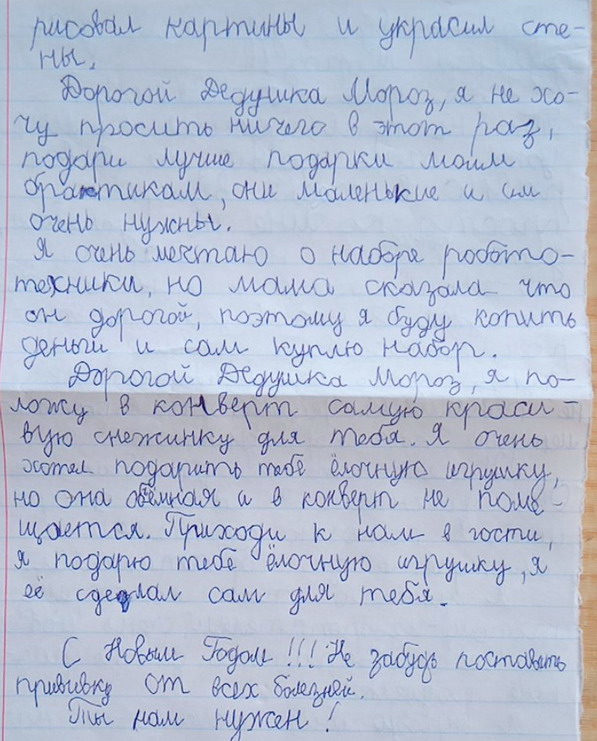 рисовал картины и украсил сте-
ны.
Дорогой Дедушка Мороз, я не хо-
чу просить ничего в этот раз,
подари лучше подарки моим
братикам, они маленькие и им
очень нужны.
Я очень мечтаю о наборе робото-
техники, но мама сказала что
он дорогой, поэтому я буду копить
деньги и сам куплю набор.
Дорогой Дедушка Мороз, я по-
ложу в конверт самую краси-
вую снежинку для тебя. Я очень
хотел подарить тебе ёлочную игрушку,
но она обёмная и в конверт не поме-
щается. Приходи к нам в гости,
я подарю тебе ёлочную игрушку, я
её сделал сам для тебя.
С Новым Годом!!! Не забудь поставить
прививку от всех болезней.
Ты нам нужен!